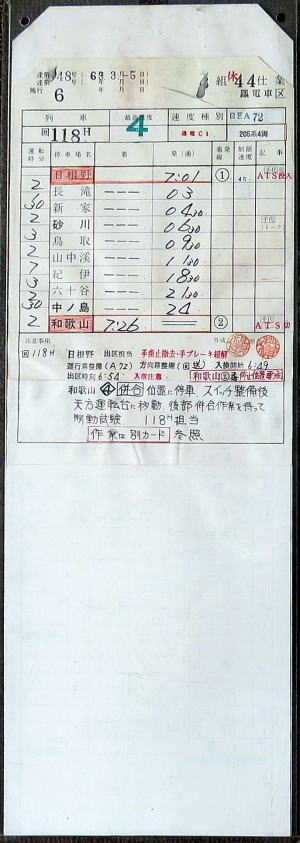 達第148号(63年3月5日)
達第 号( 年 月 日)
施行 6
組 休44仕業
鳳電車区
列車 最高速度 速度種別 日EA72
回118H 4 通電C1 205系4両
運転時分 停車場名 着 発(通) 着発線 制限速度 記事
日根野 7:01 ① 45 ATS投入
2 長滝 --- 03
30 新家 --- 04.30
2 砂川 --- 06.30
3 鳥取 --- 09.30
2 山中溪 --- 11.30
7 紀伊 --- 18.30
3 六十谷 --- 21.30
30 中ノ島 --- 24
2 和歌山 7:26 ② ATS切
注意事項 作成
回118H 日根野 出区担当 手歯止除去・手ブレーキ緩解
運行幕整備(A72) 方向幕整備(回送) 入換開始 6:49
出区時刻 6:54 入信注意
和歌山 ④ 併合位置に停車 スイッチ整備後
天方運転台に移動、後部併合作業を待って
制動試験 118H担当
作業は別カード 参照